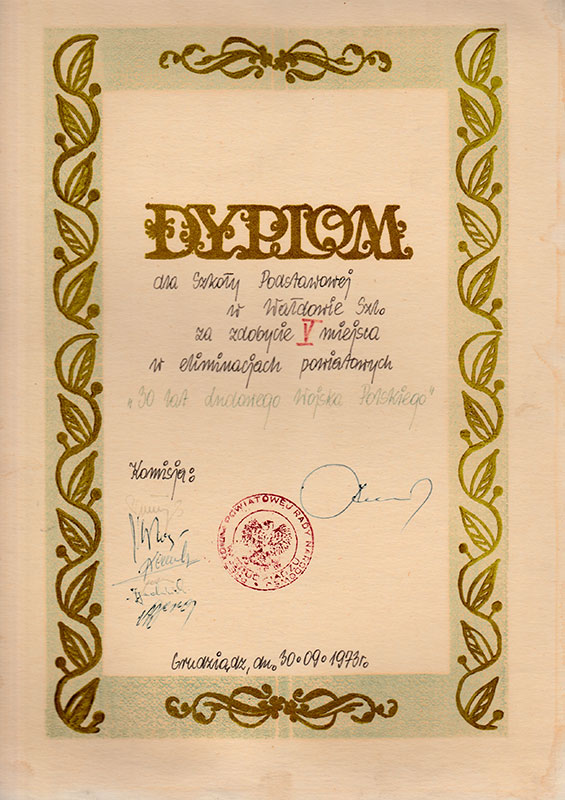 DYPLOM
dla Szkoły Podstawowej
w Wałdowie Szl.
za zdobycie V miejsca
w eliminacjach powiatowych
"30 lat Ludowego Wojska Polskiego"
Komisja:
POWIATOWEJ RADY NARODOWEJ
W GRUDZIĄDZU
Grudziądz, dn. 30.09.1973r.